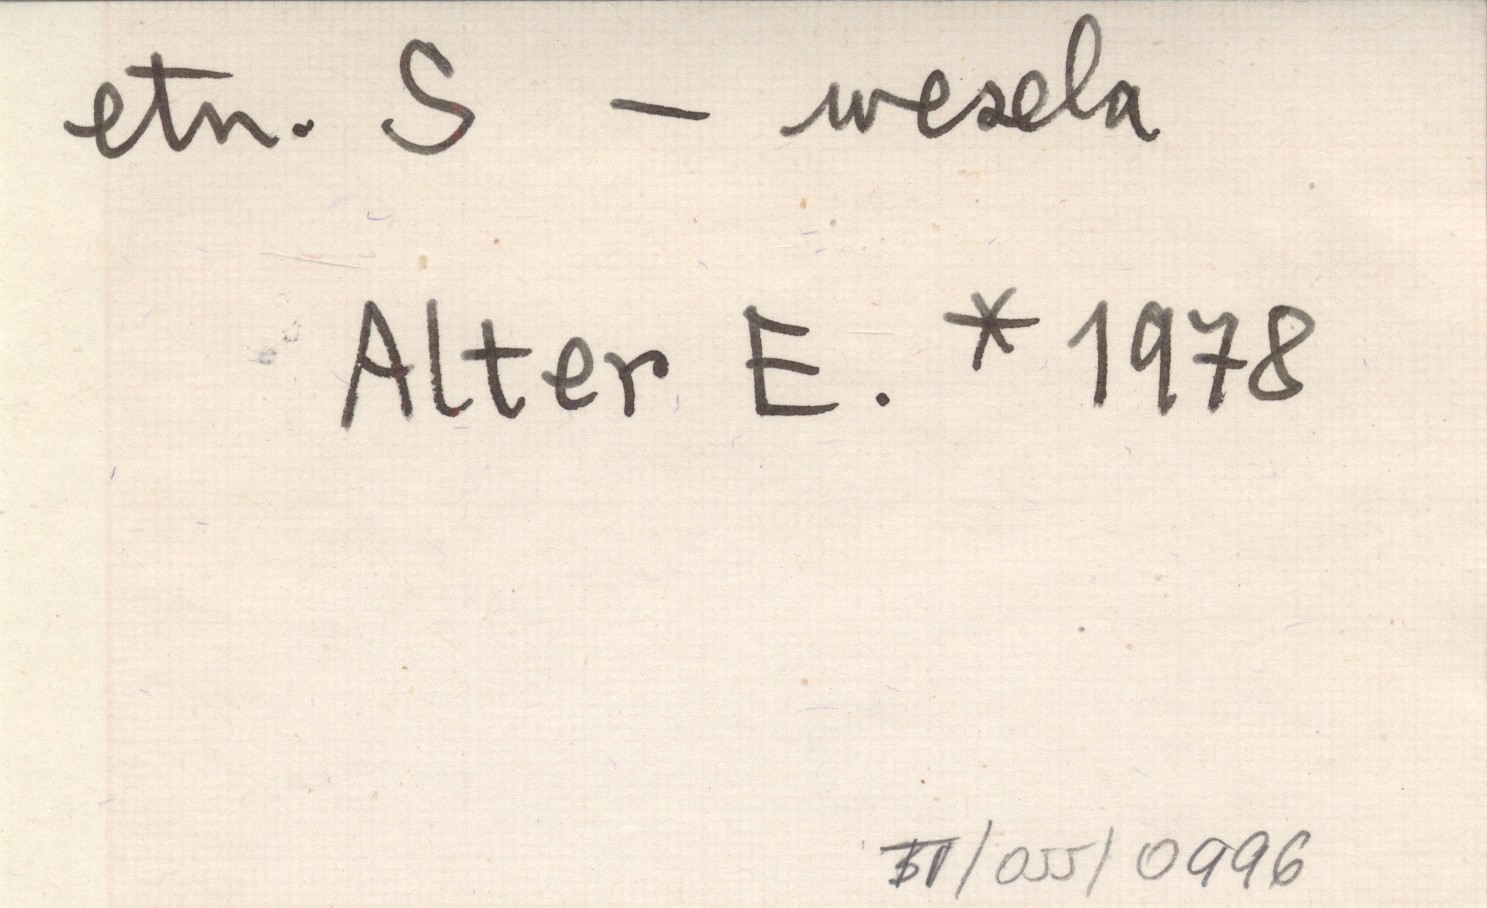 etn. S - wesela
Alter E. * 1978
/055/0996